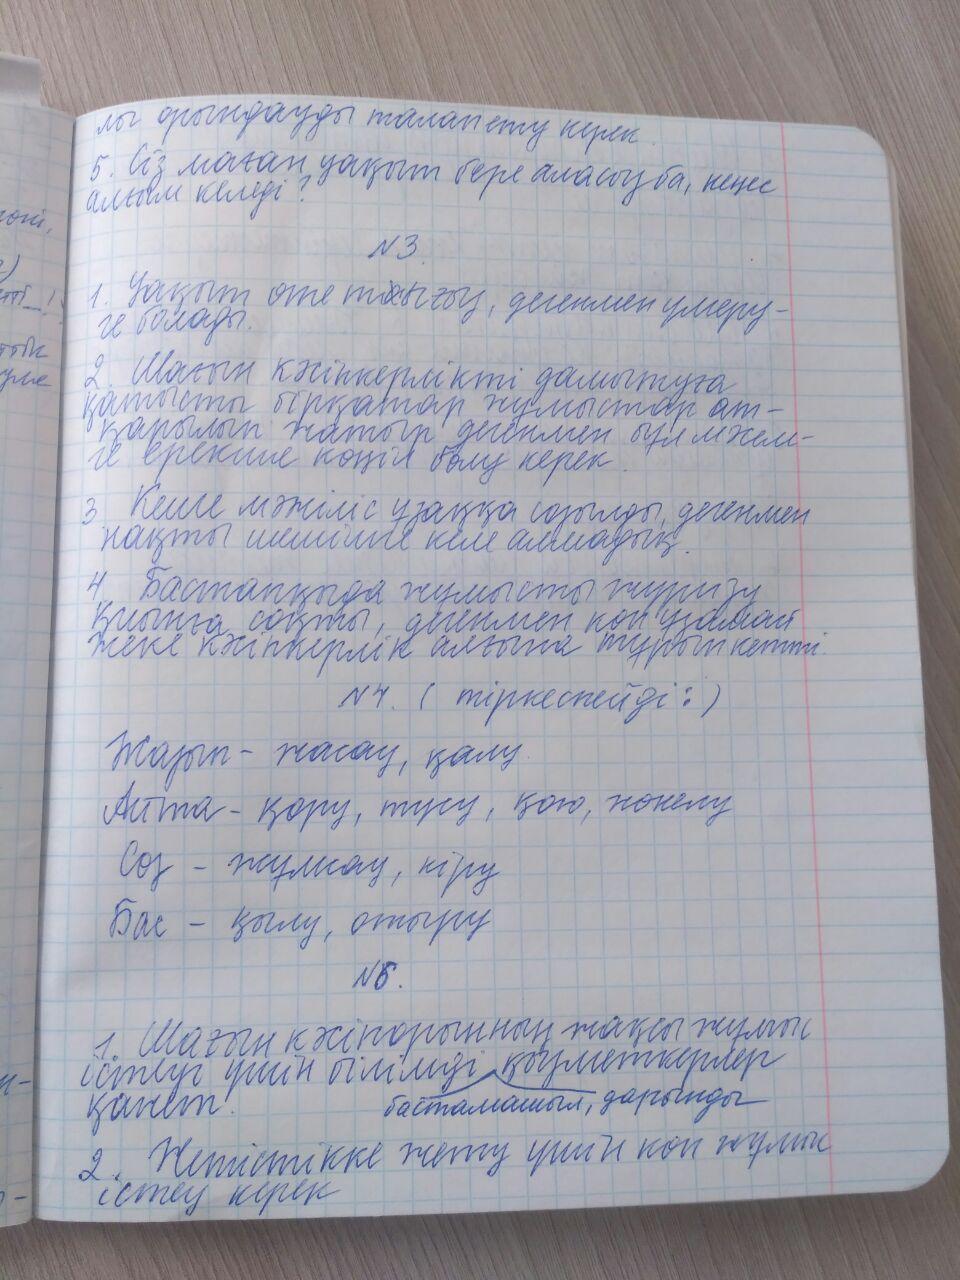 лы орындауды талап ету керек.
5. Сіз маған уақыт бере аласыз ба, кеңес
алғым келеді?
N3.
1. Уақыт өте тығыз, дегенмен үлгеру-
ге болады.
2. Шағын кәсіпкерлікті дамытуға
қатысты бірқатар жұмыстар ат-
қарылып жатыр дегенмен бұл мәсем-
ге ерекше көңіл бөлу керек.
3 Кеше мәжіліс ұзаққа созылды, дегенмен
нақты шешімге келе алмадық.
4. Бастапқыда жұмысты жүргізу
қиынға соқты, дегенмен көп ұзамай
жеке кәсіпкерлік алғына тұрып кетті.
N4. ( тіркеспейді: )
Жазып - жасау, қалу.
Айта - қору, түсу, қою, жөнелу
Сөз - жұлқау, кіру
Бас - қылу, отыру
N5.
1. Шағын кәсіпорынның жақсы жұмыс
істеуі үшін білімді қызметкерлер
қажет.
бастамашыл, дарынды
2. Жетістікке жету үшін көп жұмыс
істеу керек